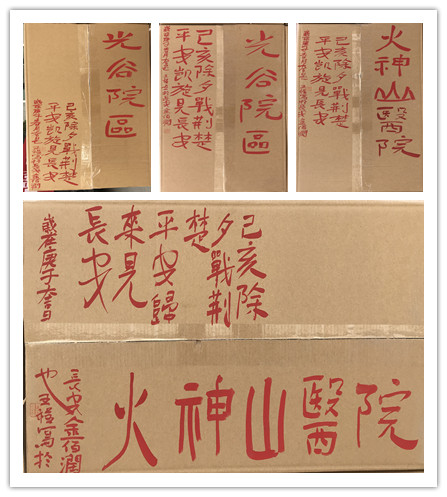 光谷院區
己亥除夕戰荆楚
平安凯旋見長安
光谷院區
己亥除夕戰荆楚
平安凯旋見長安
火神山醫院
己亥除夕戰荆楚
平安凯旋見長安
己亥除
夕戰荆
楚
平安歸
來見
長安
歲在庚子
火神山醫院
長安